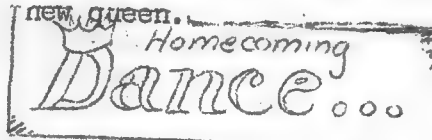 new queen.
Homecoming
Dance...